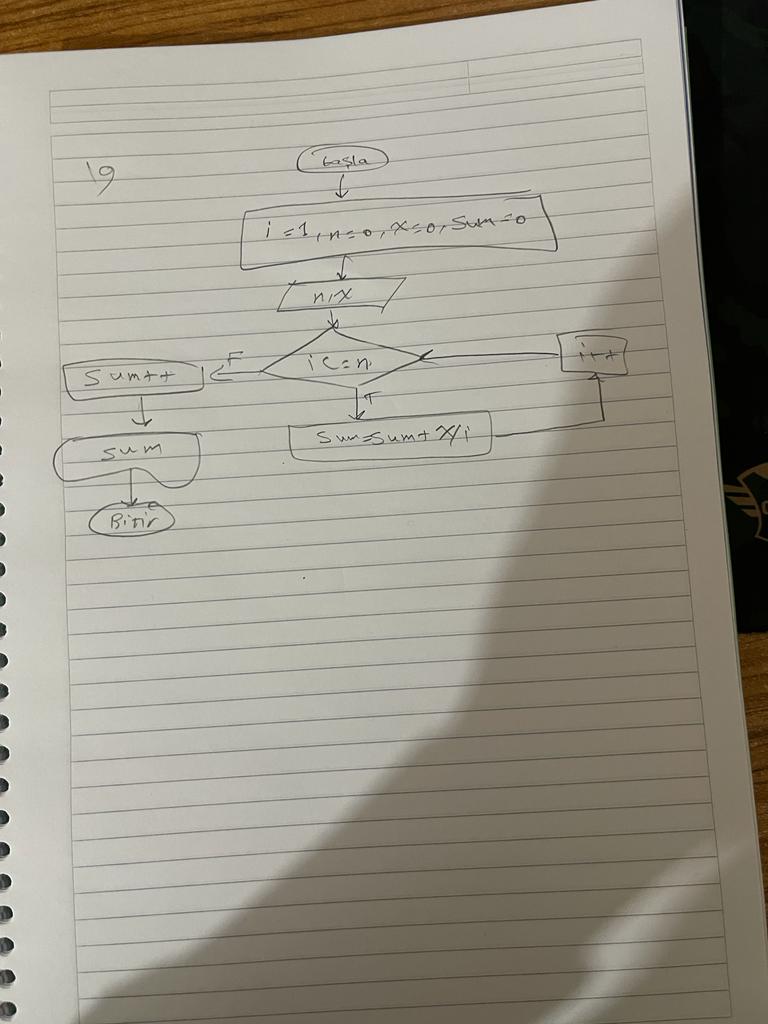 19
başla
i=1, n=0, x=0, sum=0
n, x
i<=n
F
T
i++
sum++
sum=sum+x/i
sum
Bitir